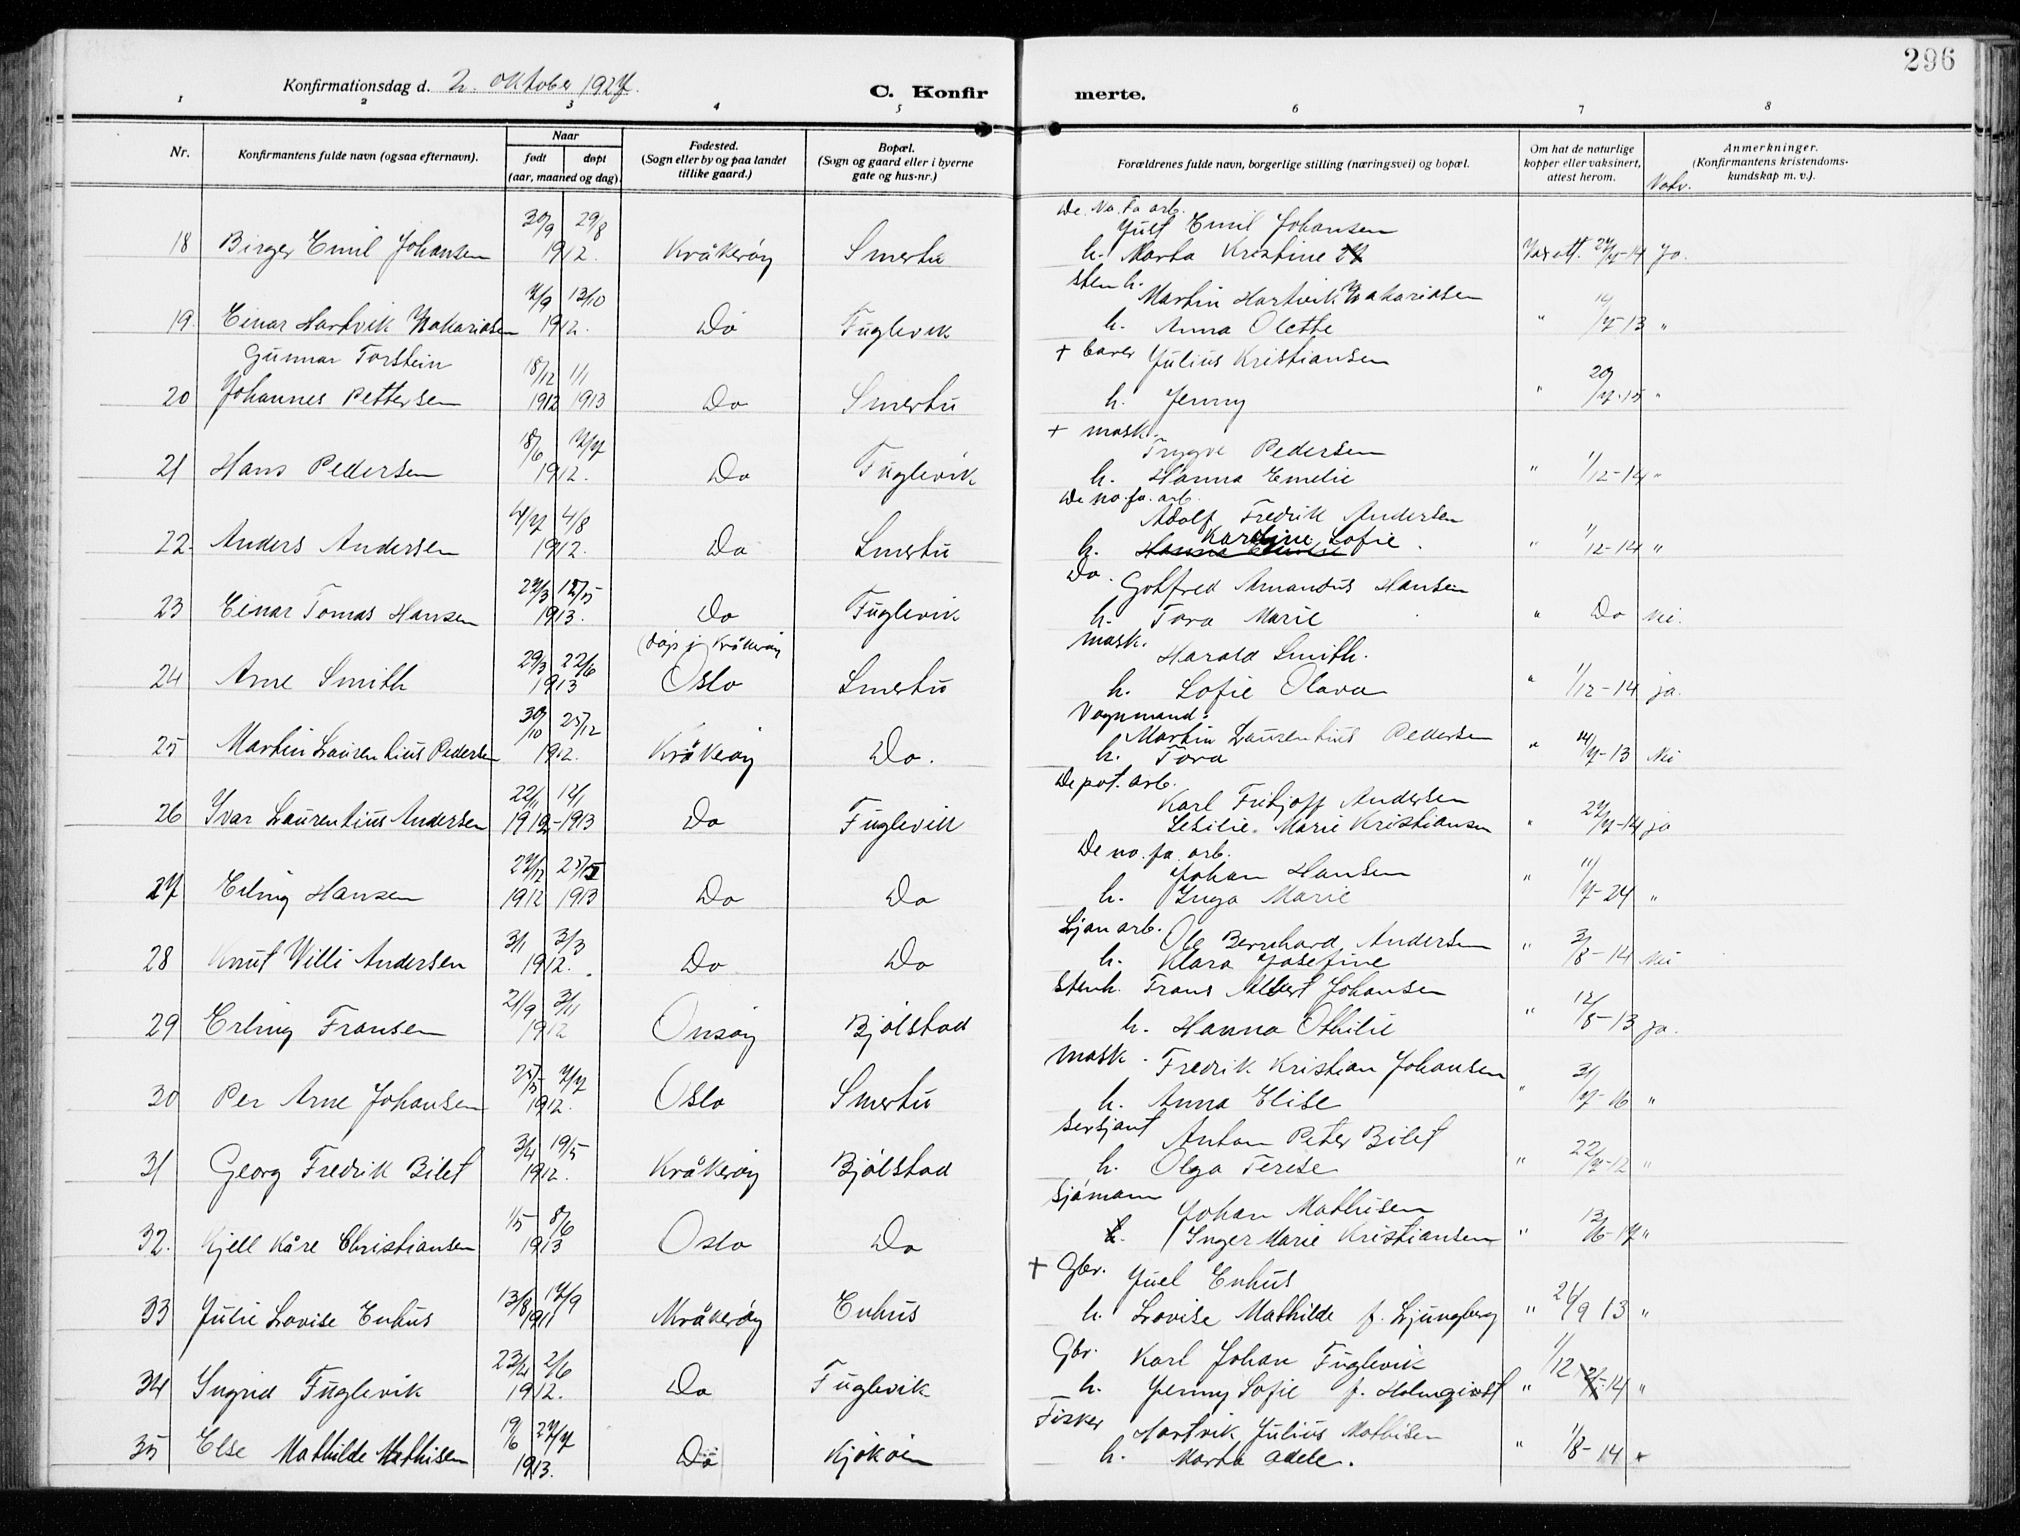 296
Konfirmationsdag d. 2. oktober 1927.
C. Konfirmerte.
1 2 3 4 5 6 7 8
Nr. Konfirmantens fulde navn (ogsaa efternavn). Naar født døpt (aar, maaned og dag). Fødested. (Sogn eller by og paa landet tillike gaard.) Bopæl. (Sogn og gaard eller i byerne gate og hus-nr.) Forældrenes fulde navn, borgerlige stilling (næringsvei) og bopæl. Om hat de naturlige kopper eller vaksinert, attest herom. Anmerkninger. (Konfirmantens kristendoms-kundskap m. v.).
De. No. Fa arb.
Juls Emil Johansen
18 Birger Emil Johansen 30/9 29/8 1912. Kråkeröy Smertu h. Marta Kristine Vax att. 27/7-14 Ja.
stenh. Martin Hartvik Zakariasen
19. Einar Hartvik Zakariasen 7/9 13/10 1912. Do Fuglevik h. Anna Olette " 14/7-13 "
Gunnar Torstein
+ Carer Julius Kristiansen
20 Johannes Pettersen 18/12 1912 1/1 1913 Do Smertu h. Jenny " 20/7-15 "
+ mask. Trygve Pedersen
21 Hans Pedersen 18/6 7/7 1912. Do Fuglevik h. Hanna Emelie " 1/12-14 "
De no. fa. arb.
Adolf Fredrik Andersen
22. Anders Andersen 4/7 4/8 1912. Do Smertu h. Karoline Sofie. " 1/12-14 "
Do. Gotfred Amandus Hansen
23 Einar Tomas Hansen 27/3 12/5 1913. Do Fuglevik h. Tora Marie " Do Nei.
(döpt i Kråkeröy
mask. Harald Smith.
24 Arne Smith 29/3 22/6 1913 Oslo Smertu h. Sofie Olava " 1/12-14 ja.
Vognmand.
Martin Laurentius Pedersen
25 Martin Laurentius Pedersen 30/10 25/12 1912. Kråkeröy Do. h. Tora " 14/7-13 Nei
De pot. arb.
Karl Fritjoff Andersen
26 Ivar Laurentius Andersen 22/11 12/1 1912-1913 Do Fuglevik Sesilie. Marie Kristiansen " 27/7-14 ja
De no. fa. arb.
Johan Hansen
27 Erling Hansen 27/12 1912 25/5 1913 Do Do h. Inga Marie " 11/7-24 "
Ljan arb. Ole Bernhard Andersen
28 Knut Willi Andersen 3/1 3/3 1912. Do Do h. Klara Josefine " 3/8-14 Nei
Stenh. Frans Albert Johansen
29 Erling Fransen 21/9 3/11 1912 Onsöy Bjölstad h. Hanna Othilie " 12/5-13 ja.
Mask. Fredrik Kristian Johansen
30 Per Arne Johansen 25/5 7/7 1912. Oslo Smertu h. Anna Elise " 31/7-16 "
Sersjant Anton Peter Bilet
31 Georg Fredrik Bilet 3/4 19/5 1912. Kråkeröy Bjölstad h. Olga Terese " 22/7-12 "
Sjömann Johan Mathisen
32. Kjell Kåre Christiansen 1/5 8/6 1913 Oslo Do h. Inger Marie Kristiansen " 13/6-17 "
+ Gbr. Juel Enhus
33 Julie Lovise Enhus 13/8 17/9 1911 Kråkeröy Enhus h. Lovise Mathilde f. Ljungberg " 26/9 13 "
Gbr. Karl Johan Fuglevik
34 Ingrid Fuglevik 23/4 2/6 1912. Do Fuglevik h. Jenny Sofie f. Holmqvist " 1/12-14 "
Fisker Hartvik Julius Mathisen
35 Else Mathilde Mathisen 19/6 27/7 1913. Do Kjökøen h. Marta Adele. " 1/8-14 "